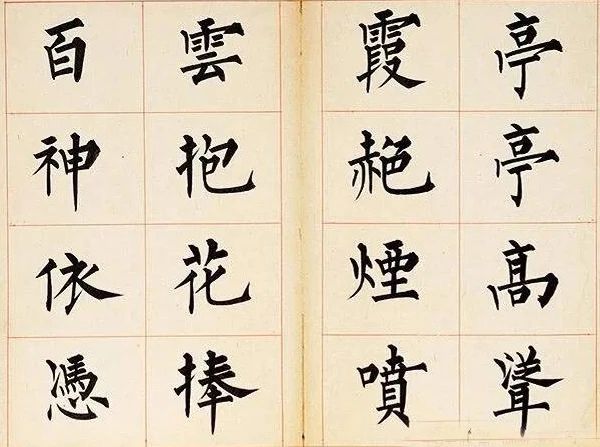 亭亭髙聳
霞赩煙噴
雲抱花捧
百神依憑